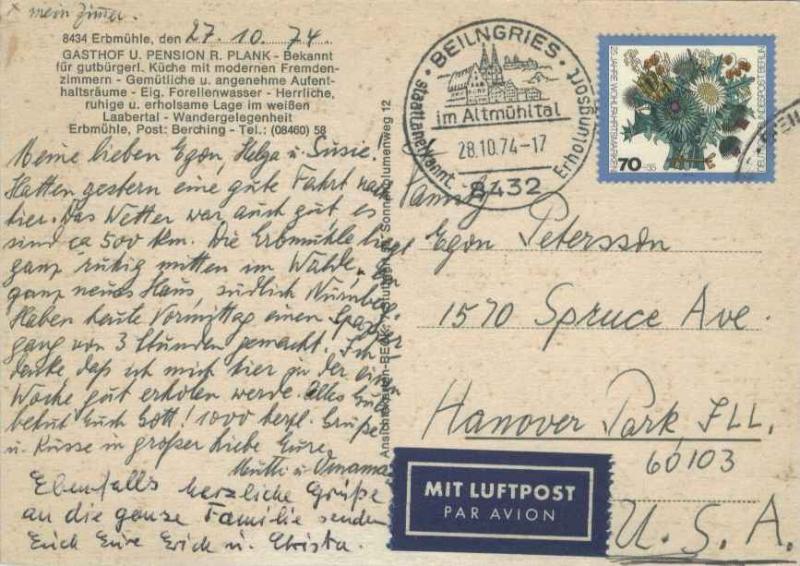 x mein Zimmer.
8434 Erbmühle, den 27. 10. 74
GASTHOF U. PENSION R. PLANK - Bekannt
für gutbürgerl. Küche mit modernen Fremden-
zimmern - Gemütliche u. angenehme Aufent-
haltsräume - Eig. Forellenwasser - Herrliche,
ruhige u. erholsame Lage im weißen
Laabertal - Wandergelegenheit
Erbmühle, Post: Berching - Tel.: (08460) 58
Meine lieben Egon, Helga u. Susie!
Hatten gestern eine gute Fahrt nach
hier. Das Wetter war auch gut, es
sind ca 500 km. Die Erbmühle liegt
ganz ruhig mitten im Walde, ein
ganz neues Haus, südlich Nürnberg.
Haben heute Vormittag einen Spazier
gang von 3 Stunden gemacht. Ich
denke daß ich mich hier in der einen
Woche gut erholen werde. Alles Gute
behüt Euch Gott! 1000 herzl. Grüße
u. Küsse in großer Liebe Eure
Mutti u. Omama
Ebenfalls herzliche Grüße
an die ganze Familie senden
Euch Eure Erich u. Christa.
Sonnenblumenweg 12
BEILNGRIES
im Altmühltal
28.10.74-17
8432
staatl.anerkannt. Erholungsort
25 JAHRE WOHLFAHRTSMARKE
DEUTSCHE BUNDESPOST BERLIN
70+35
Family
Egon Petersson
1570 Spruce Ave.
Hanover Park ILL.
60103
U.S.A.
MIT LUFTPOST
PAR AVION